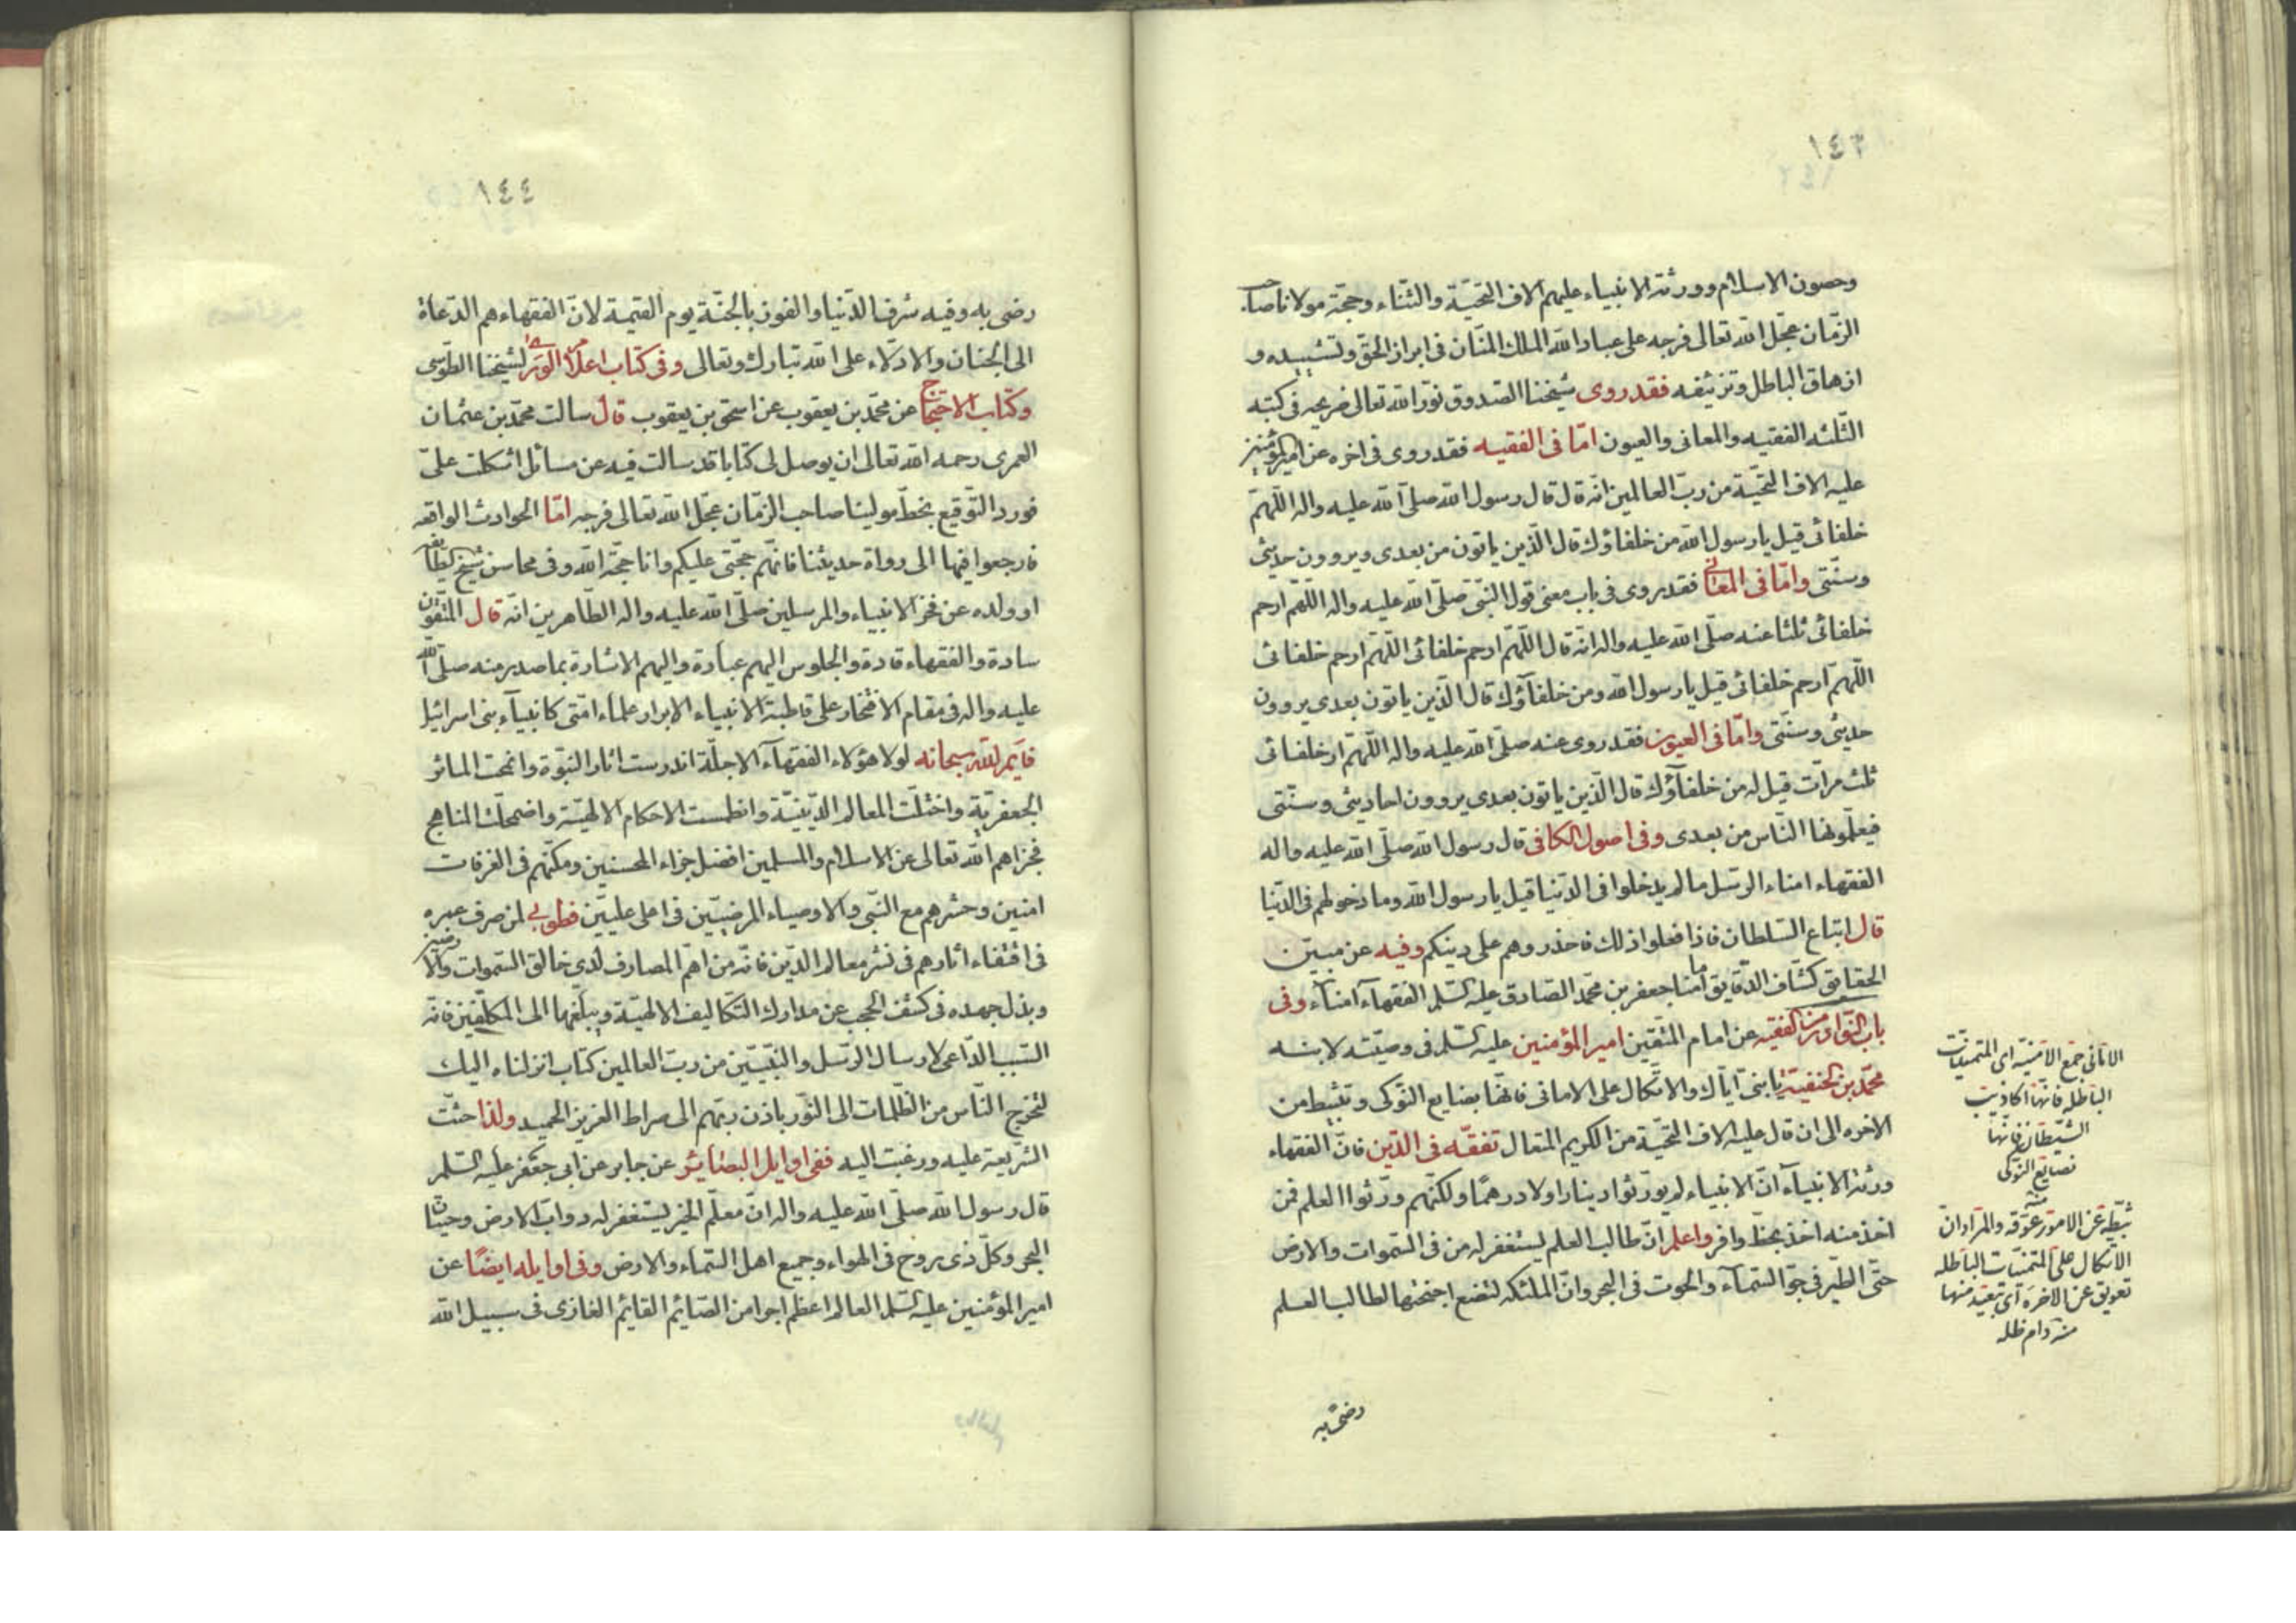 ١٤٣
وحصون الاسلام وورثة الانبياء عليهم الاف التحيّة والثّناء وحجّة مولانا صاحب
الزّمان عجّل الله تعالى فرجه على عباد الله الملك المنّان فى ابراز الحقّ وتشييده و
ازهاق الباطل وتزئيفه فقد روى شيخنا الصّدوق نوّر الله تعالى ضريحه فى كتبه
الثّلثه الفقيه والمعانى والعيون امّا فى الفقيه فقد روى فى اخره عن اميرالمؤمنين
عليه الاف التحيّة من ربّ العالمين انّه قال قال رسول الله صلّى الله عليه واله اللّهمّ
خلفائى قيل يا رسول الله من خلفاؤك قال الّذين ياتون من بعدى ويروون حديثى
وسنّتى وامّا فى المعانى فقد روى فى باب معنى قول النّبى صلّى الله عليه واله اللّهمّ ارحم
خلفائى ثلثا عنه صلّى الله عليه واله انّه قال اللّهمّ ارحم خلفائى اللّهمّ ارحم خلفائى
اللّهمّ ارحم خلفائى قيل يا رسول الله ومن خلفآؤك قال الّذين ياتون بعدى يروون
حديثى وسنّتى وامّا فى العيون فقد روى عنه صلّى الله عليه واله اللّهمّ ارحم خلفائى
ثلث مرّات قيل له من خلفآؤك قال الّذين ياتون بعدى يروون احاديثى وسنّتى
فيعلّمونها النّاس من بعدى وفى اصول الكافى قال رسول الله صلّى الله عليه واله
الفقهاء امناء الرّسل مالم يدخلوا فى الدّنيا قيل يا رسول الله وما دخولهم فى الدّنيا
قال اتباع السّلطان فاذا فعلوا ذلك فاحذروهم على دينكم وفيه عن مبيّن
الحقايق كشّاف الدّقايق امامنا جعفر بن محمّد الصّادق عليه السّلم الفقهاء امنآء وفى
باب النّوادر من الفقيه عن امام المتّقين امير المؤمنين عليه السّلم فى وصيّته لابنه
محمّد بن الحنفيّة يا بنىّ ايّاك والاتّكال على الامانى فانّها بضايع النّوكى وتثبيط من
الاخره الى ان قال عليه الاف التّحيّة من الكريم المتعال تفقّه فى الدّين فانّ الفقهاء
ورثة الانبيآء انّ الانبياء لم يورّثوا دينارا ولا درهمًا ولكنّهم ورّثوا العلم فمن
اخذ منه اخذ بحظّ وافر واعلم انّ طالب العلم ليستغفر له من فى السّموات والارض
حتّى الطّير فى جوّ السّمآء والحوت فى البحر وانّ الملئكه لتضع اجنحتها لطالب العلم
رضى به
الامانى جمع الامنيّه اى المتمنّيات
الباطله فانّها اكاذيب
الشّيطان فانّها
بضايع النّوكى
منه
ثبّطه عن الامور عوّقه والمراد ان
الاتكال على المتمنّيات الباطله
تعويق عن الاخرة اى تبعيد منها
منه دام ظلّه
١٤٤
رضى به وفيه شرف الدّنيا والفوز بالجنّة يوم القيمة لانّ الفقهاء هم الدّعاة
الى الجنان والادلّاء على الله تبارك وتعالى وفى كتاب اعلام الورى لشيخنا الطّوسى
وكتاب الاحتجاج عن محمّد بن يعقوب عن اسحق بن يعقوب قال سالت محمّد بن عثمان
العمرى رحمه الله تعالى ان يوصل لى كتابا قد سالت فيه عن مسائل اشكلت علىّ
فورد التّوقيع بخطّ مولينا صاحب الزّمان عجّل الله تعالى فرجه امّا الحوادث الواقعه
فارجعوا فيها الى رواة حديثنا فانّهم حجّتى عليكم وانا حجّة الله وفى محاسن شيخ الطّايفه
او ولده عن فخر الانبياء والمرسلين صلّى الله عليه واله الطّاهرين انّه قال المتّقون
سادة والفقهاء قادة والجلوس اليهم عبادة واليهم الاشارة بما صدر منه صلّى الله
عليه واله فى مقام الافتخار على قاطبة الانبياء الابرار علماء امّتى كانبيآء بنى اسرائيل
فايم الله سبحانه لولا هؤلاء الفقهآء الاجلّة اندرست اثار النّبوّة وانمحت الماثر
الجعفريّة واختلّت المعالم الدّينيّة وانطمست الاحكام الالهيّة واضمحلّت المناهج
فجزاهم الله تعالى عن الاسلام والمسلمين افضل جزاء المحسنين ومكّنهم فى الغرفات
امنين وحشرهم مع النّبى والاوصياء المرضيّين فى اعلى علّيّين فطوبى لمن صرف عمره
فى اقتفاء اثارهم فى نشر معالم الدّين فانّه من اهمّ المصارف لدى خالق السّموات والارضين
وبذل جهده فى كشف الحجب عن مدارك التّكاليف الالهيّة ويبلّغها الى المكلّفين فانّه
السّبب الدّاعى لارسال الرّسل والنّبيّين من ربّ العالمين كتاب انزلناه اليك
لتخرج النّاس من الظّلمات الى النّور باذن ربّهم الى صراط العزيز الحميد ولذا حثّت
الشّريعة عليه ورغبت اليه ففى اوايل البصائر عن جابر عن ابى جعفر عليه السّلم
قال رسول الله صلّى الله عليه واله انّ معلّم الخير ليستغفر له دوابّ الارض وحيتان
البحر وكلّ ذى روح فى الهواء وجميع اهل السّماء والارض وفى اوايله ايضًا عن
امير المؤمنين عليه السّلم العالم اعظم اجرا من الصّائم القايم الغازى فى سبيل الله